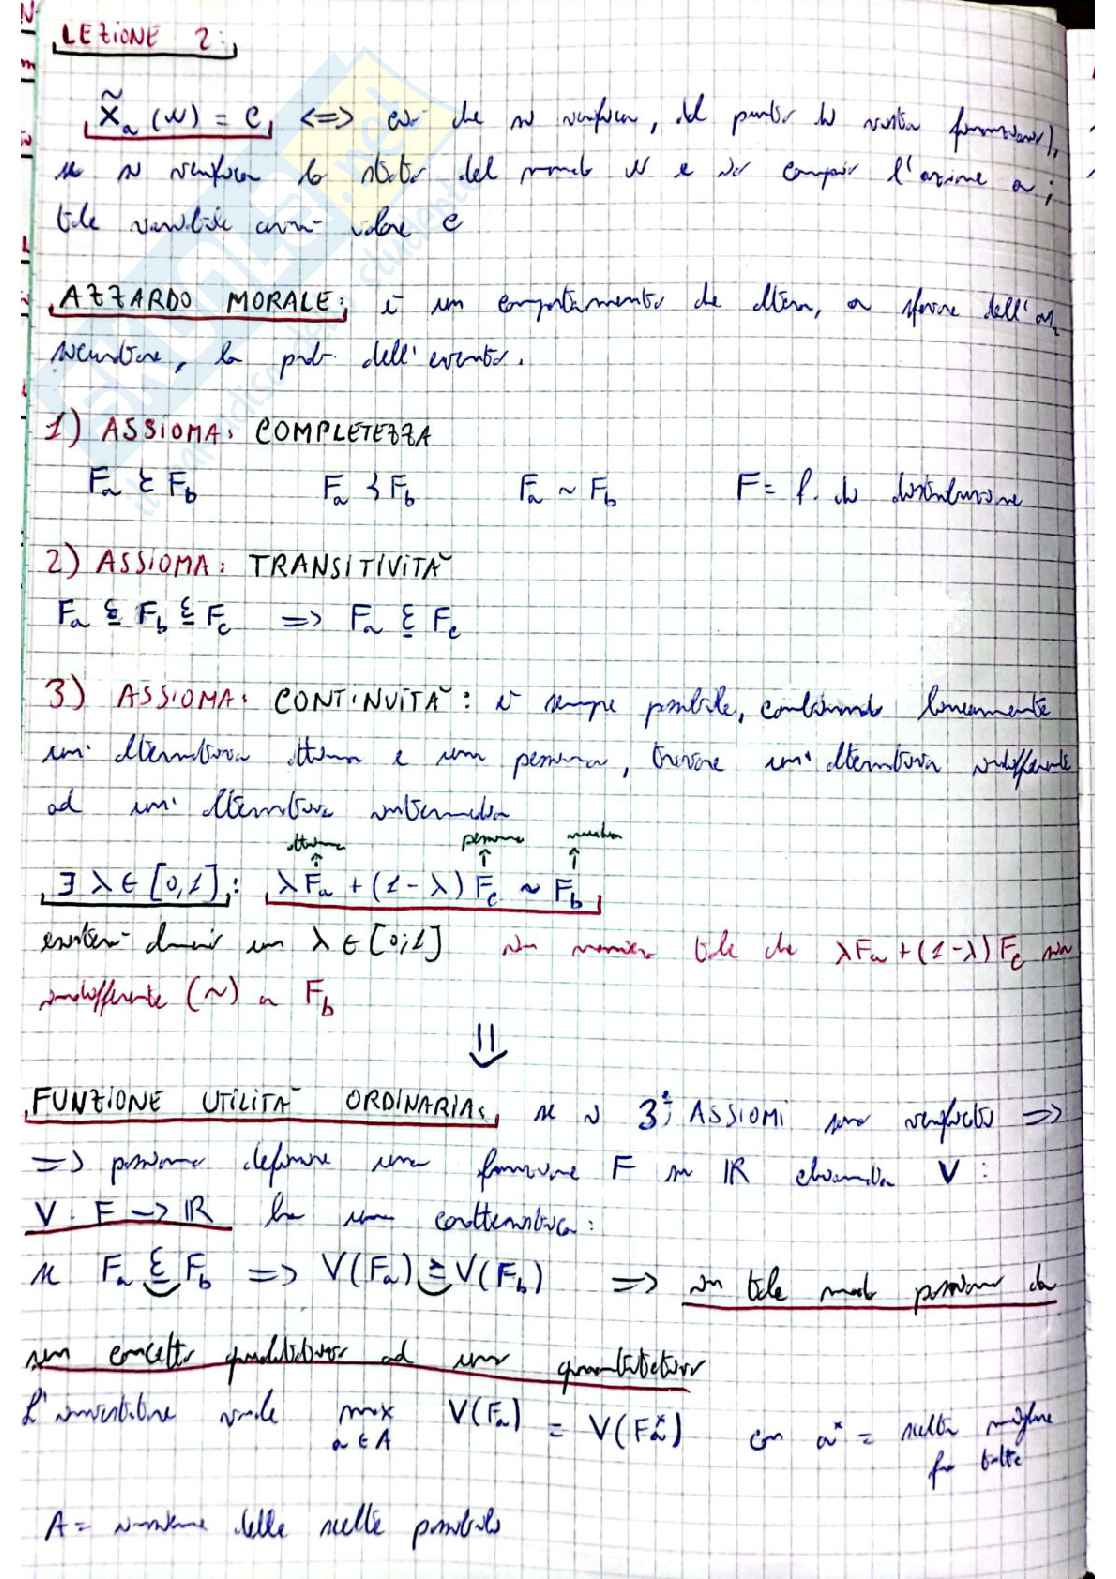 LEZIONE 2:
X̃a (ω) = c, <=> ciò che si verifica, dal punto di vista finanziario,
se si verifica lo stato del mondo ω e si compie l'azione a;
tale variabile avrà valore c
AZZARDO MORALE: è un comportamento che altera, a sfavore dell'as
sicuratore, la prob. dell'evento.
1) ASSIOMA: COMPLETEZZA
Fa ≿ Fb Fa ≺ Fb Fa ~ Fb F = f. di distribuzione
2) ASSIOMA: TRANSITIVITÀ
Fa ≿ Fb ≿ Fc => Fa ≿ Fc
3) ASSIOMA: CONTINUITÀ: è sempre possibile, combinando linearmente
un'alternativa ottima e una pessima, trovare un'alternativa indifferente
ad un'alternativa intermedia
ottima pessima media
↑ ↑ ↑
∃ λ ∈ [0,1]: λFa + (1-λ) Fc ~ Fb
esisterà dunque un λ ∈ [0;1] in maniera tale che λFa + (1-λ) Fc sia
indifferente (~) a Fb
⇓
FUNZIONE UTILITÀ ORDINARIA: se i 3 ASSIOMI sono verificati =>
=> possiamo definire una funzione F in ℝ chiamata V:
V: F -> ℝ ha una caratteristica:
se Fa ≿ Fb => V(Fa) ≥ V(Fb) => in tale modo passiamo da
un concetto qualitativo ad uno quantitativo
L'investitore vuole max V(Fa) = V(Fa*) con a* = scelta migliore
a ∈ A fra tutte
A = insieme delle scelte possibili